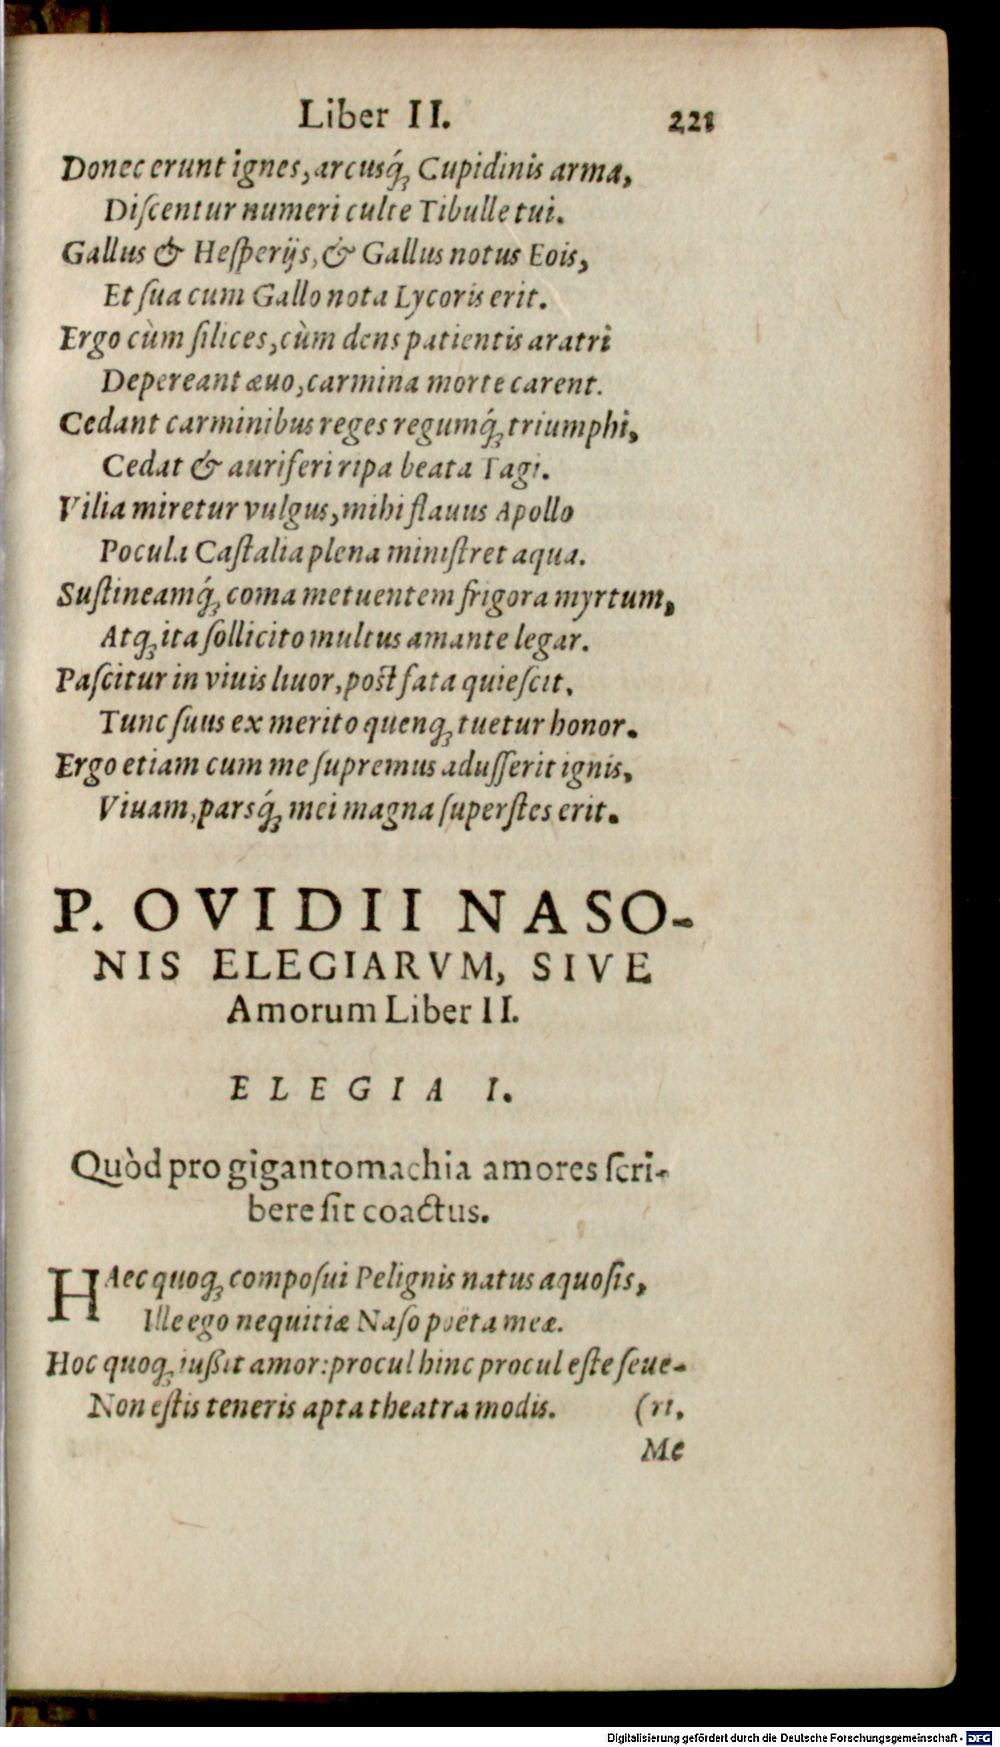 Liber II. 221
Donec erunt ignes, arcusq́; Cupidinis arma,
Diſcentur numeri culte Tibulle tui.
Gallus & Heſperijs, & Gallus notus Eois,
Et ſua cum Gallo nota Lycoris erit.
Ergo cùm ſilices, cùm dens patientis aratri
Depereant æuo, carmina morte carent.
Cedant carminibus reges regumq́; triumphi,
Cedat & auriferi ripa beata Tagi.
Vilia miretur vulgus, mihi flauus Apollo
Pocula Caſtalia plena miniſtret aqua.
Suſtineamq́; coma metuentem frigora myrtum,
Atq; ita ſollicito multus amante legar.
Paſcitur in viuis liuor, poſt fata quieſcit,
Tunc ſuus ex merito quenq; tuetur honor.
Ergo etiam cum me ſupremus aduſſerit ignis,
Viuam, parsq́; mei magna ſuperſtes erit.
P. OVIDII NASO-
NIS ELEGIARVM, SIVE
Amorum Liber II.
ELEGIA I.
Quòd pro gigantomachia amores ſcri-
bere ſit coactus.
HAec quoq; compoſui Pelignis natus aquoſis,
Ille ego nequitiæ Naſo poëta meæ.
Hoc quoq; iußit amor: procul hinc procul eſte ſeue-
Non eſtis teneris apta theatra modis. (ri.
Me
Digitalisierung gefördert durch die Deutsche Forschungsgemeinschaft - DFG